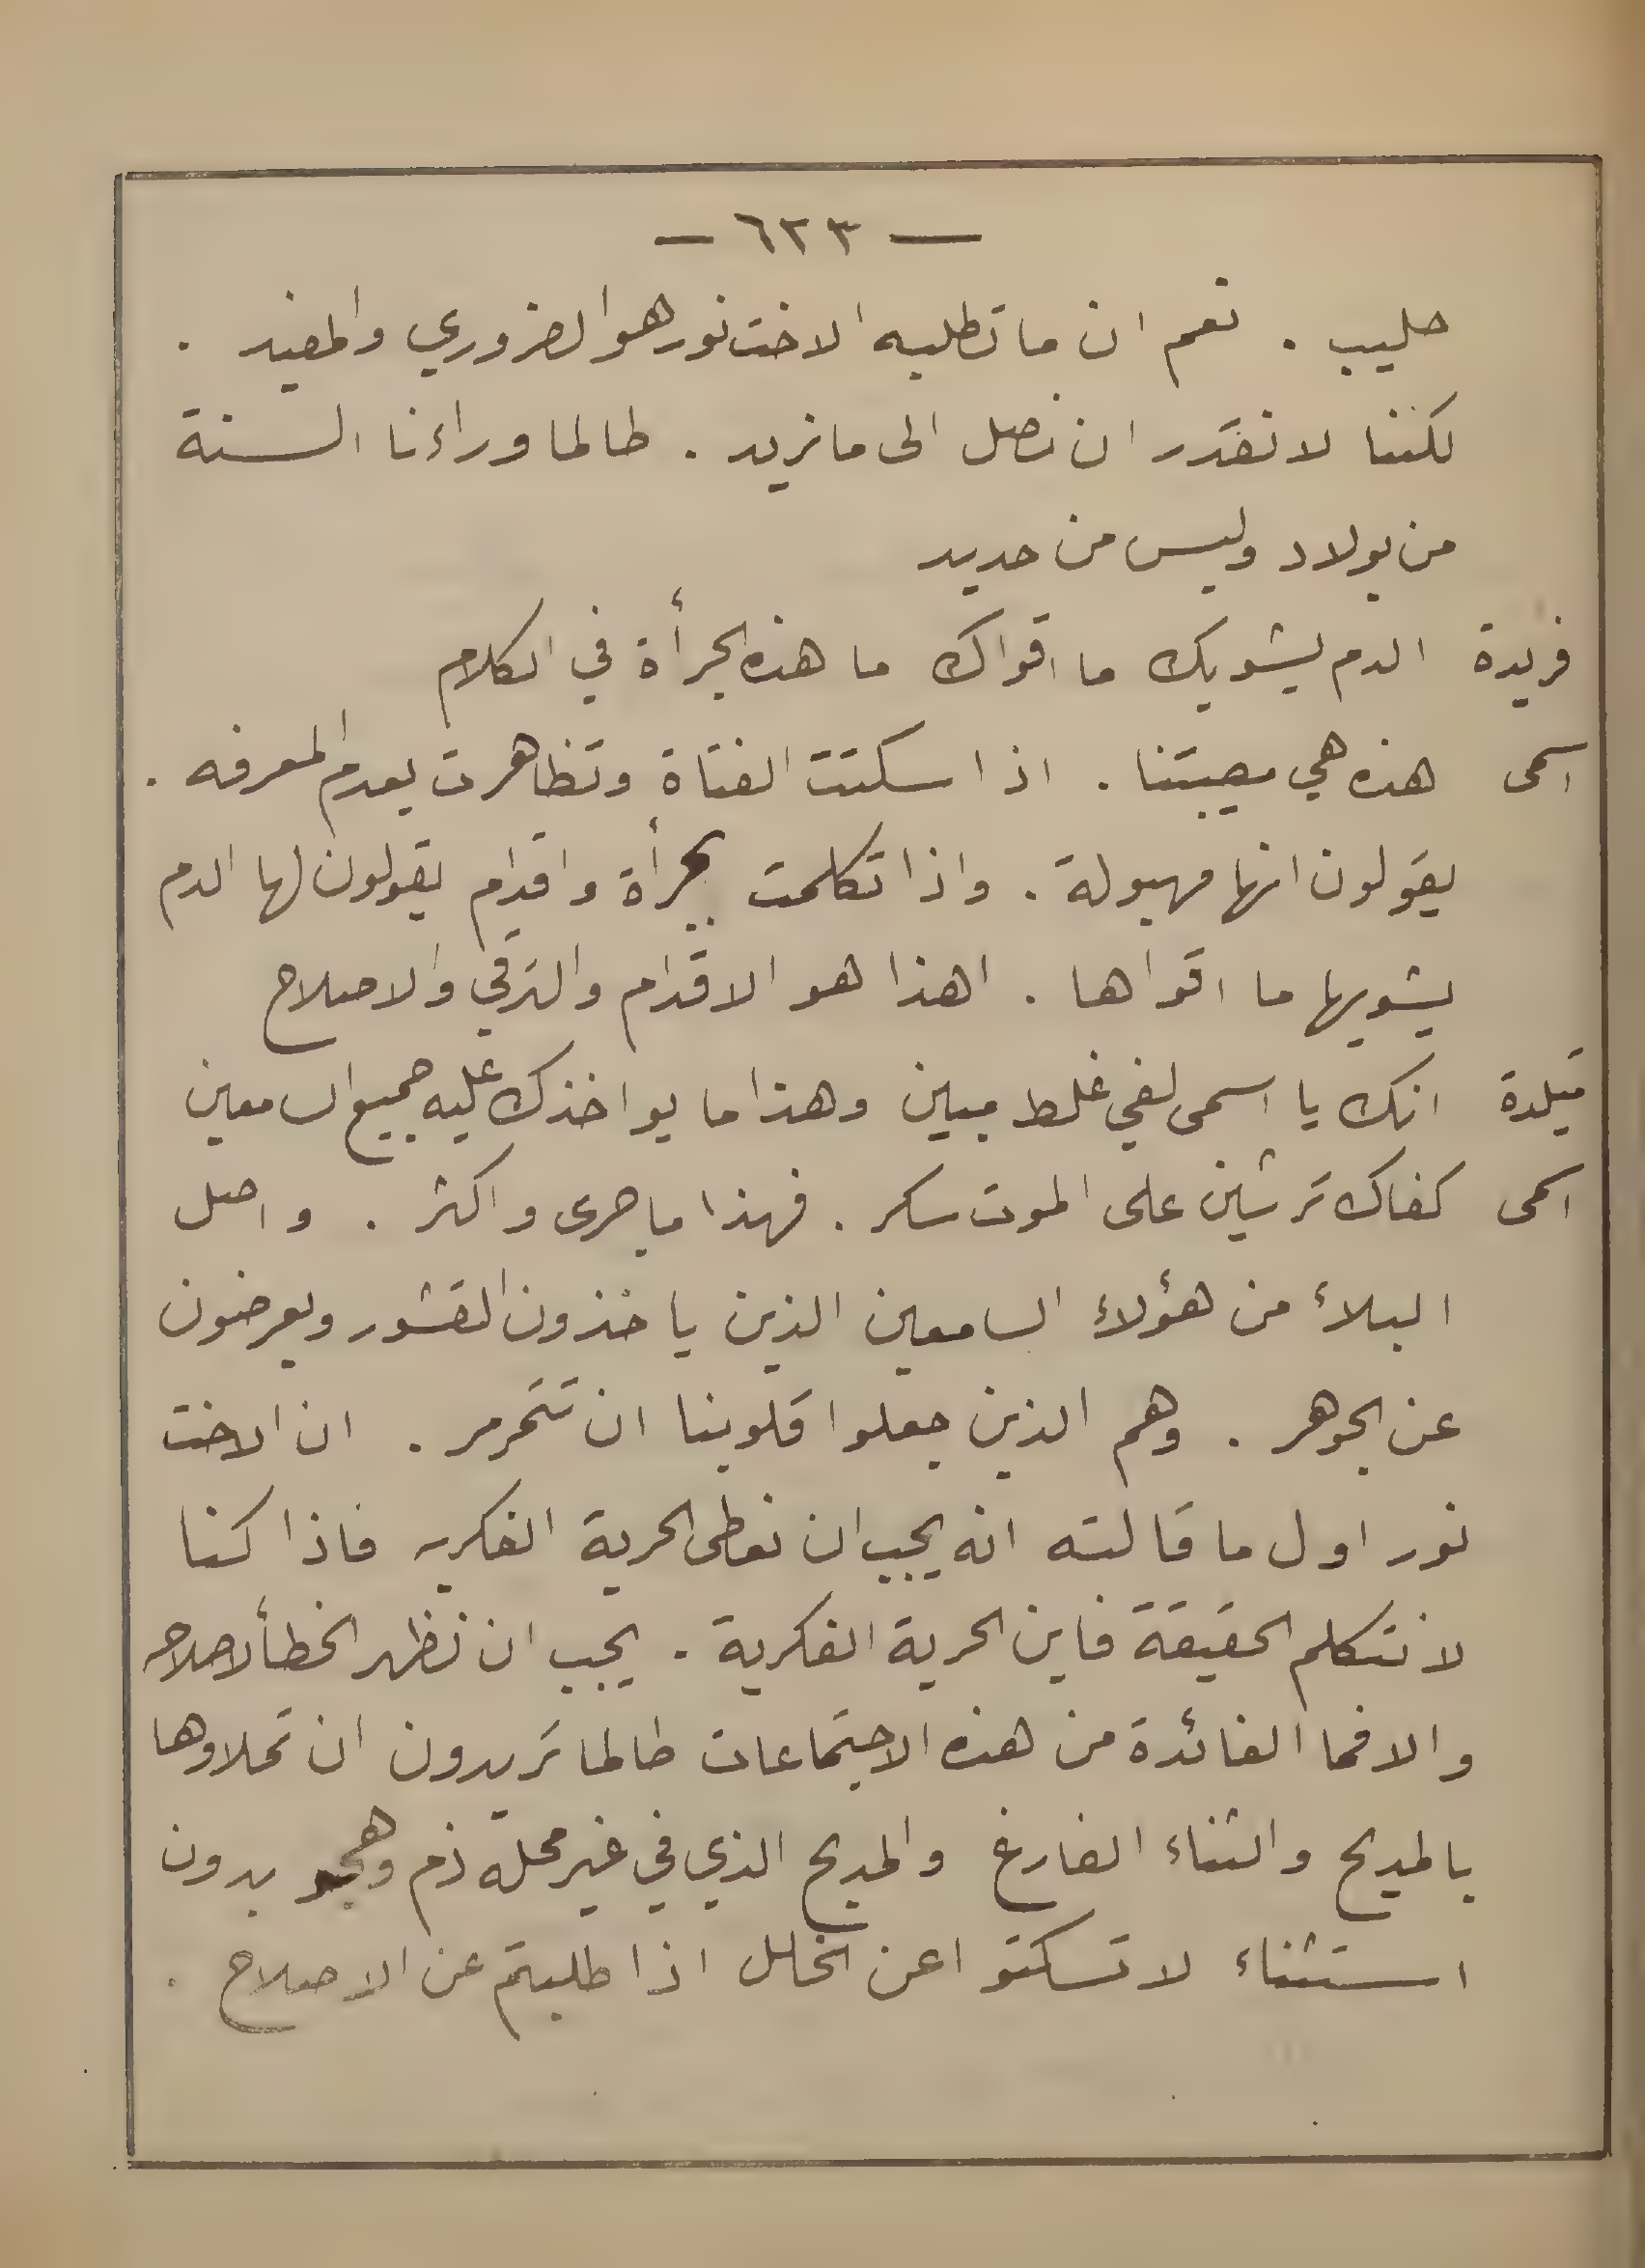 — ٦٢٣ —
حليب . نعم ان ما تطلبه الاخت نور هو الضروري والمفيد .
لكننا لا نقدر ان نصل الى ما نريد . طالما وراءنا السنة
من بولاد وليس من حديد
فريدة الدم يشويك ما اقواك ما هذه الجرأة في الكلام
اسمى هذه هي مصيبتنا . اذا سكتت الفتاة وتظاهرت بعدم المعرفه .
يقولون انها مهبولة . واذا تكلمت بجرأة واقدام يقولون لها الدم
يشويها ما اقواها . اهذا هو الاقدام والترقي والاصلاح
قيلدة انك يا اسمى لفي غلط مبين وهذا ما يواخذك عليه جميع السامعين
اسمى كفاك ترشين على الموت سكر . فهذا ما جرى واكثر . واصل
البلاء من هؤلاء السامعين الذين ياخذون القشور ويعرضون
عن الجوهر . وهم الذين جعلوا قلوبنا ان تتحرمر . ان الاخت
نور اول ما قالته انه يجب ان نعطى الحرية الفكريه فاذا كنا
لا نتكلم الحقيقة فاين الحرية الفكرية . يجب ان نظهر الخطأ لاصلاحه
والا فما الفائدة من هذه الاجتماعات طالما تريدون ان تملاوها
بالمديح والثناء الفارغ والمديح الذي في غير محله ذم وهجو بدون
استثناء لا تسكتوا عن الخلل اذا طلبتم عن الاصلاح .